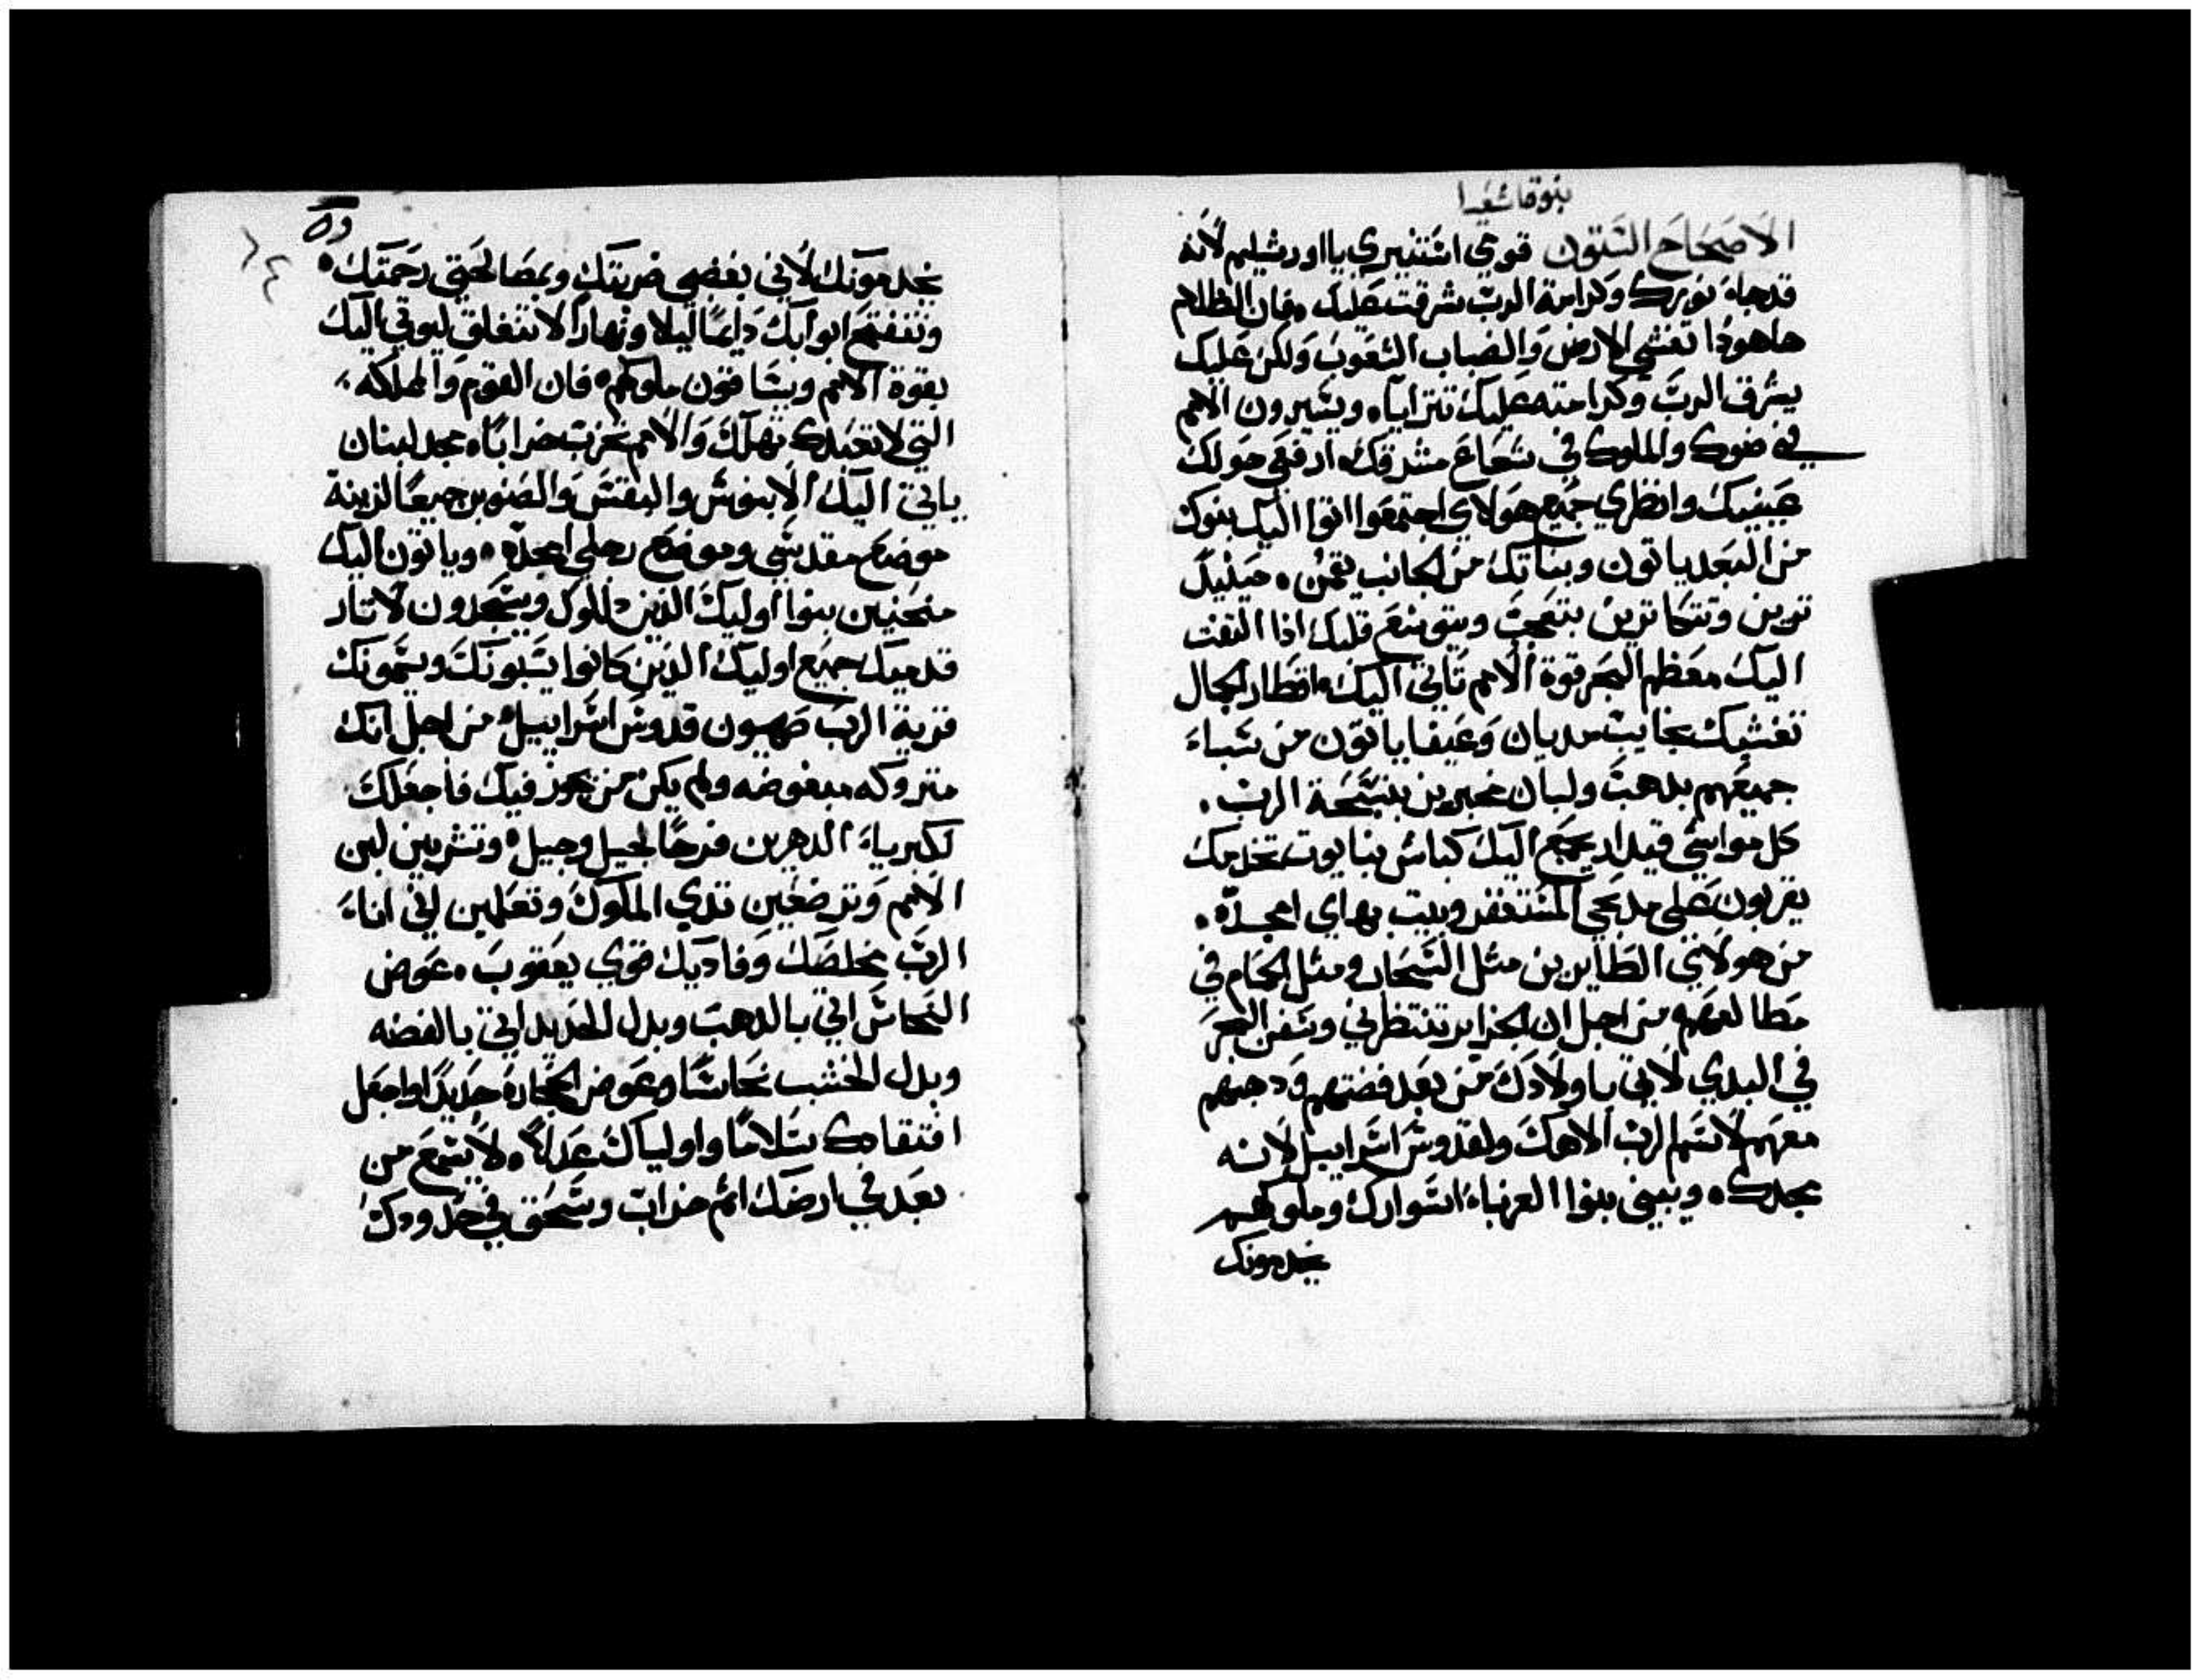 بنوة اشعيا
الاصحاح الستون قومي استنيري يا اورشليم لانه
قد جاء نورك وكرامة الرب شرقت عليك ۰ فان الظلام
هاهوذا تغشي الارض والضباب الشعوب ولكن عليك
يشرق الرب وكرامته عليك تترايا ۰ ويسيرون الامم
في ضوك والملوك في شعاع مشرقك ۰ ارفعي حولك
عينيك وانظري جميع هولاي اجتمعوا اتوا اليك بنوك
من البعد ياتون وبناتك من الجانب يقمن ۰ حينيذ
ترين وتتكاثرين بتعجب ويتوسع قلبك اذا التفت
اليك معظم البحر قوة الامم تاتي اليك ۰ اقطار الجمال
تغشيك بخايب مديان وعيفا ياتون من سباء
جميعهم بدهب ولبان مخبرين بتسبحة الرب ۰
كل مواشي قيدار يجمع اليك كباش نبايوت تخدمك
يقربون على مدبحي المستغفر وبيت بهاي امجده ۰
من هولاي الطايرين مثل السحاب ومثل الحمام في
مطالعهم من اجل ان الجزاير تنتظرني وسفن البحر
في البدي لاتي باولادك من بعد فضتهم ودهبهم
معهم لاسم الرب الاهك ولقدوس اسراييل لانه
مجدك ۰ ويبني بنوا الغرباء اسوارك وملوكهم
يخدمونك
وه
يخدمونك لاني بغضبي ضربتك وبمصالحتي رحمتك ۰
وتنفتح ابوابك دايما ليلا ونهارا لا تنغلق ليوتي اليك
بقوة الامم ويساقون ملوكهم ۰ فان القوم والمملكه
التي لا تعبدك تهلك والامم تخرب خرابا ۰ مجد لبنان
ياتي اليك الابنوس والبقس والصنوبر جميعا لزينة
موضع مقدسي وموضع رجلي امجده ۰ وياتون اليك
منحنيين بنوا اوليك الذين دللوك ويسجدون لاتار
قدميك جميع اوليك الذين كانوا يسبونك ويسمونك
قرية الرب صهيون قدوس اسراييل ۰ من اجل انك
متروكه مبغوضه ولم يكن من يجوز فيك فاجعلك
لكبرياء الدهرين فرحا لجيل وجيل ۰ وتشربين لبن
الامم وترضعين تدي الملوك وتعلمين اني اناء
الرب مخلصك وفاديك قوي يعقوب ۰ عوض
النحاس اتي بالدهب وبدل الحديد اتي بالفضه
وبدل الخشب نحاسا وعوض الحجاره حديدا واجعل
افتقادك سلاما واولياك عدلا ۰ لا يسمع من
بعد في ارضك اثم خراب وسحق في حدودك